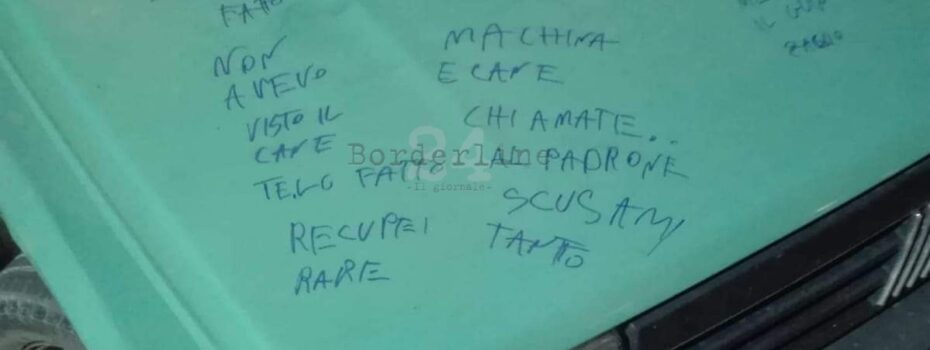 FATTO
NON
AVEVO
VISTO IL
CANE
TELO FATTO
RECUPEI
RARE
MACHINA
E CANE
CHIAMATE..
AL PADRONE
SCUSAMI
TANTO
IL
24
Borderline
-Il giornale-